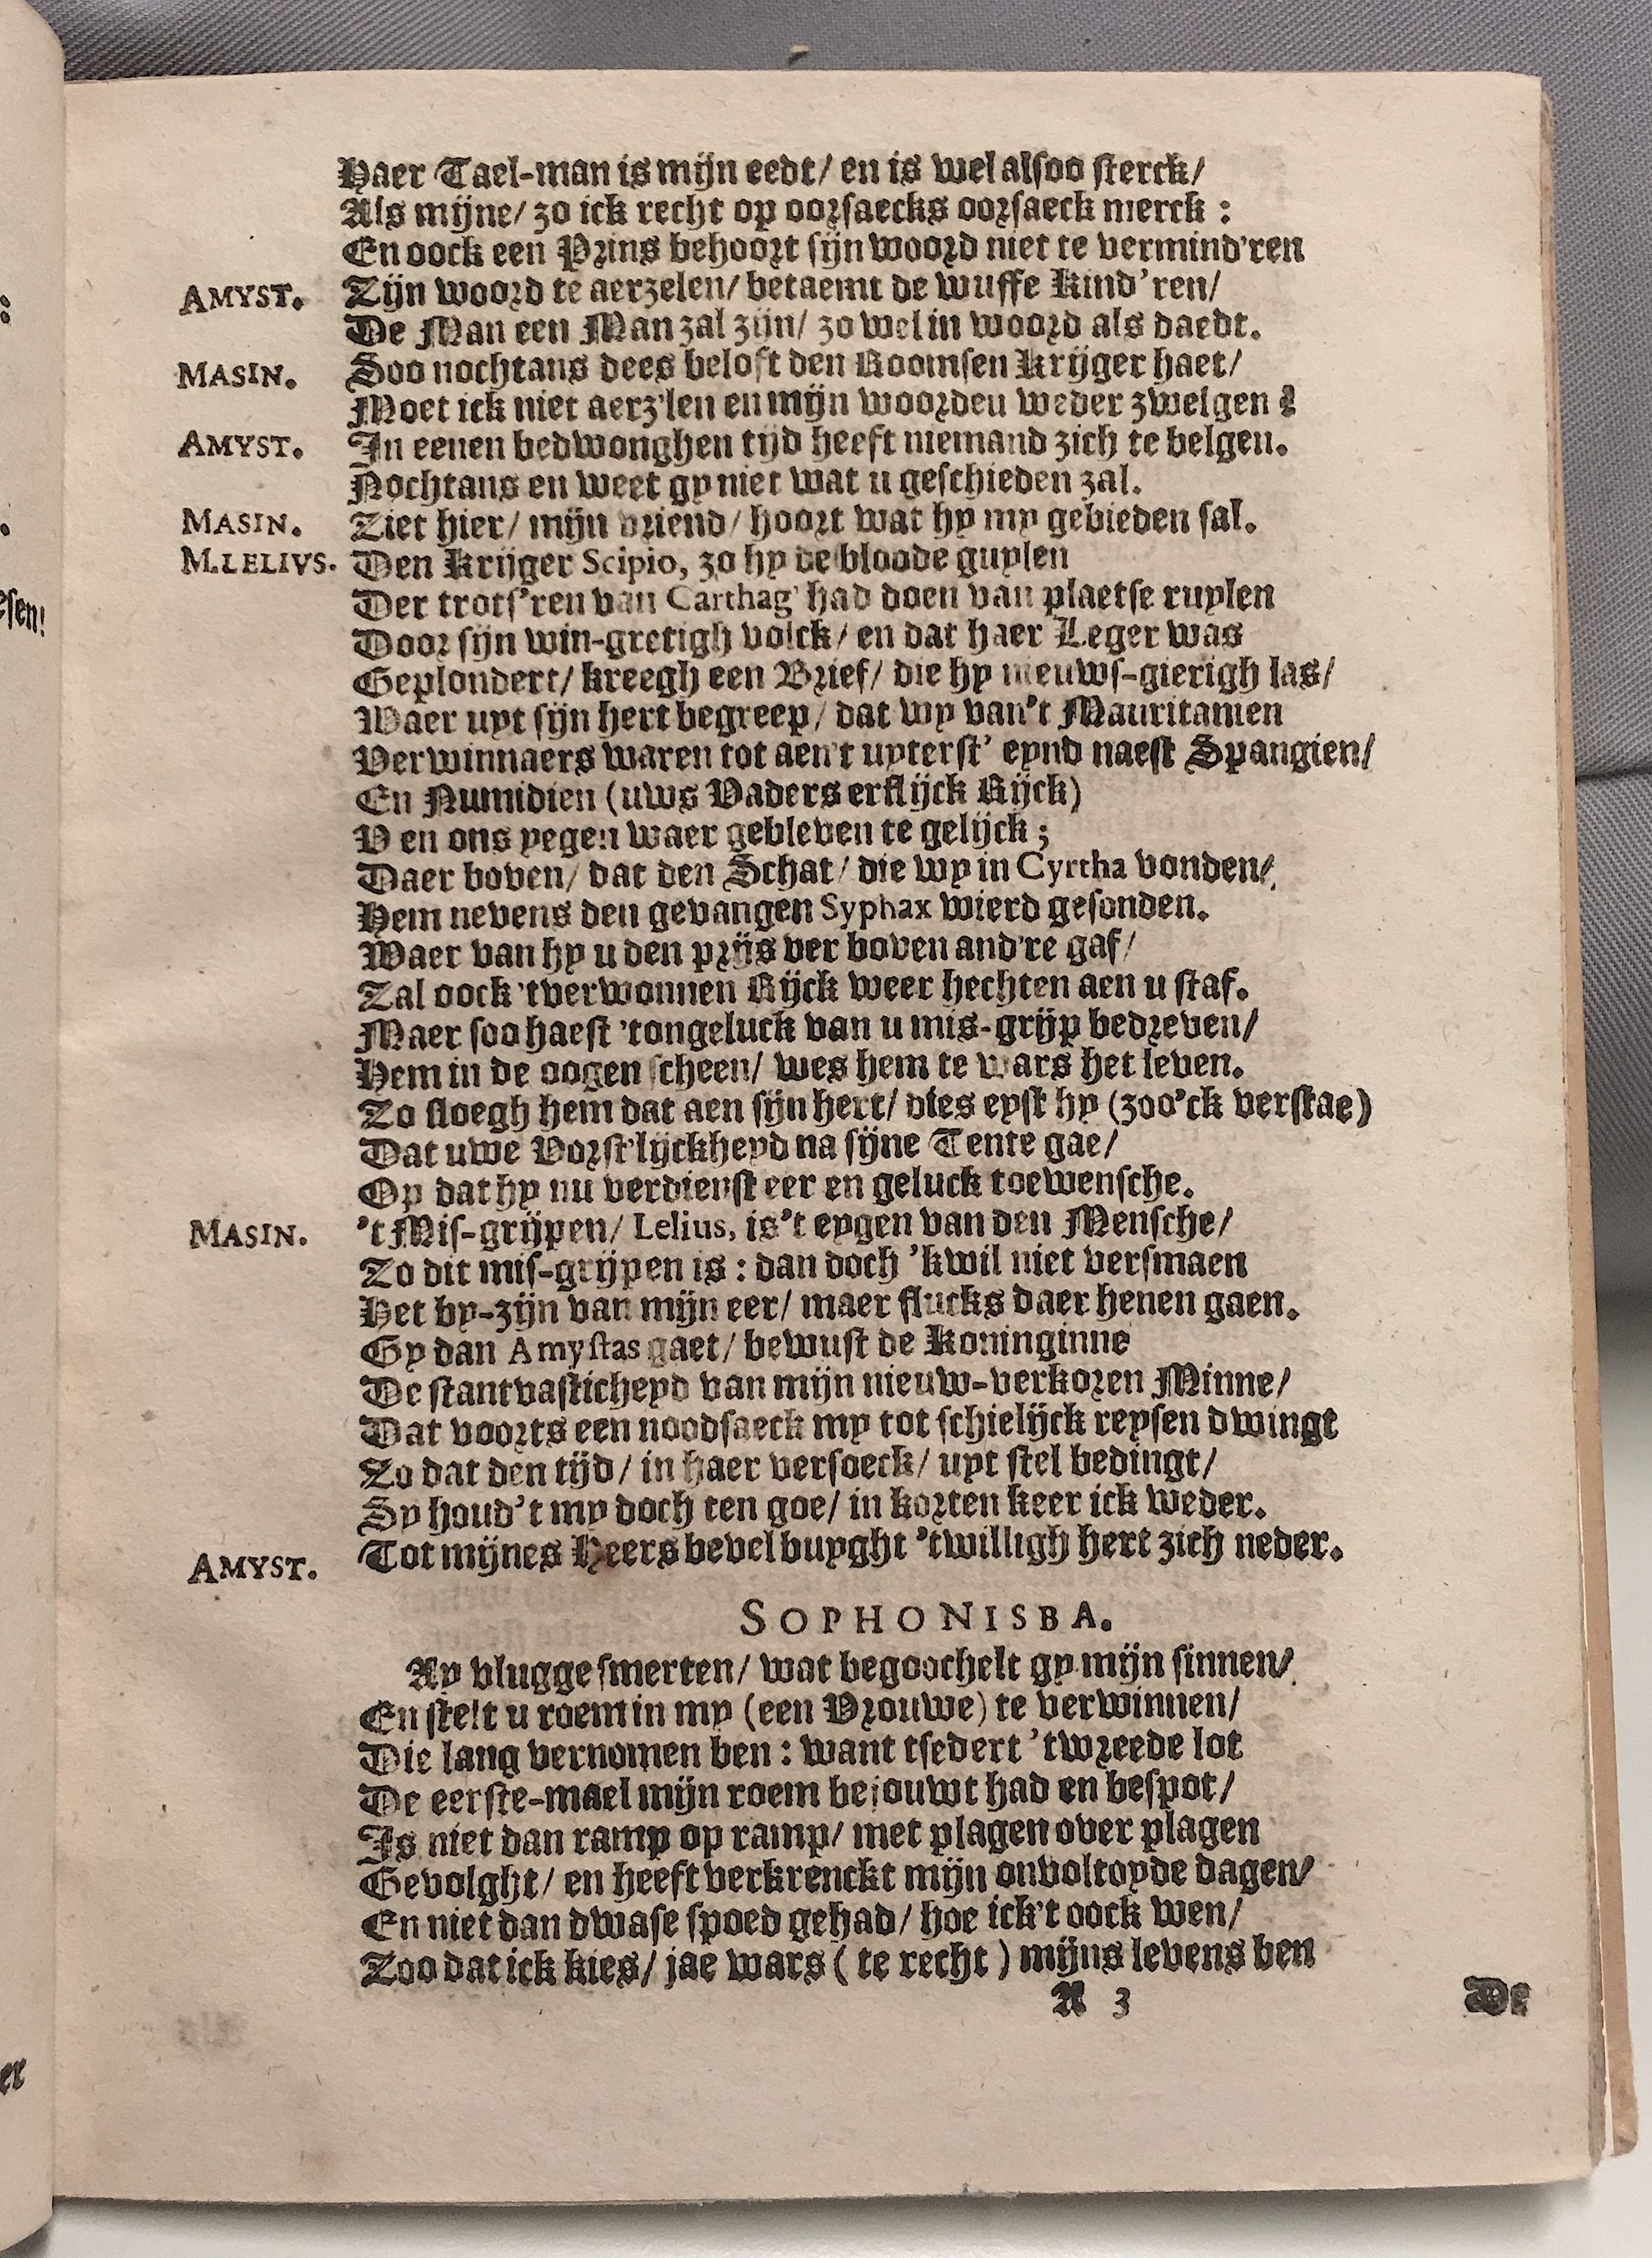 Haer Tael-man is mijn eedt/ en is wel alsoo sterck/
Als mijne/ zo ick recht op oorsaecks oorsaeck merck :
En oock een Prins behoort sijn woord niet te vermind'ren
AMYST. Zijn woord te aerzelen/ betaemt de wuffe Kind'ren/
De Man een Man zal zijn/ zo wel in woord als daedt.
MASIN. Soo nochtans dees beloft den Roomsen Krijger haet/
Moet ick niet aerz'len en mijn woordeu weder zwelgen ?
AMYST. In eenen bedwonghen tijd heeft niemand zich te belgen.
Nochtans en weet gy niet wat u geschieden zal.
MASIN. Ziet hier/ mijn vriend/ hoort wat hy my gebieden sal.
M.LELIVS. Den Krijger Scipio, zo hy de bloode guylen
Der trots'ren van Carthag' had doen van plaetse ruylen
Door sijn win-gretigh volck/ en dat haer Leger was
Geplondert/ kreegh een Brief/ die hy nieuws-gierigh las/
Waer uyt sijn hert begreep/ dat wy van't Mauritanien
Verwinnaers waren tot aen't uyterst' eynd naest Spangien/
En Numidien (uws Vaders erflijck Rijck)
V en ons yegen waer gebleven te gelijck ;
Daer boven/ dat den Schat/ die wy in Cyrtha vonden/
Hem nevens den gevangen Syphax wierd gesonden.
Waer van hy u den prijs ver boven and're gaf/
Zal oock 'tverwonnen Rijck weer hechten aen u staf.
Maer soo haest 'tongeluck van u mis-grijp bedreven/
Hem in de oogen scheen/ wes hem te wars het leven.
Zo sloegh hem dat aen sijn hert/ dies eyst hy (zoo'ck verstae)
Dat uwe Vorst'lijckheyd na sijne Tente gae/
Op dat hy nu verdienst eer en geluck toewensche.
MASIN. 't Mis-grijpen/ Lelius, is't eygen van den Mensche/
Zo dit mis-grijpen is : dan doch 'kwil niet versmaen
Het by-zijn van mijn eer/ maer flucks daer henen gaen.
Gy dan Amystas gaet/ bewust de Koninginne
De stantvasticheyd van mijn nieuw-verkoren Minne/
Dat voorts een noodsaeck my tot schielijck reysen dwingt
Zo dat den tijd/ in haer versoeck/ uyt stel bedingt/
Sy houd't my doch ten goe/ in korten keer ick weder.
AMYST. Tot mijnes Heers bevel buyght 'twilligh hert zich neder.
SOPHONISBA.
Ay vlugge smerten/ wat begoochelt gy mijn sinnen/
En stelt u roem in my (een Vrouwe) te verwinnen/
Die lang vernomen ben : want tsedert 'twreede lot
De eerste-mael mijn roem bejouwt had en bespot/
Is niet dan ramp op ramp/ met plagen over plagen
Gevolght/ en heeft verkrenckt mijn onvoltoyde dagen/
En niet dan dwase spoed gehad/ hoe ick't oock wen/
Zoo dat ick kies/ jae wars ( te recht ) mijns levens ben
A 3 De
esen!
er